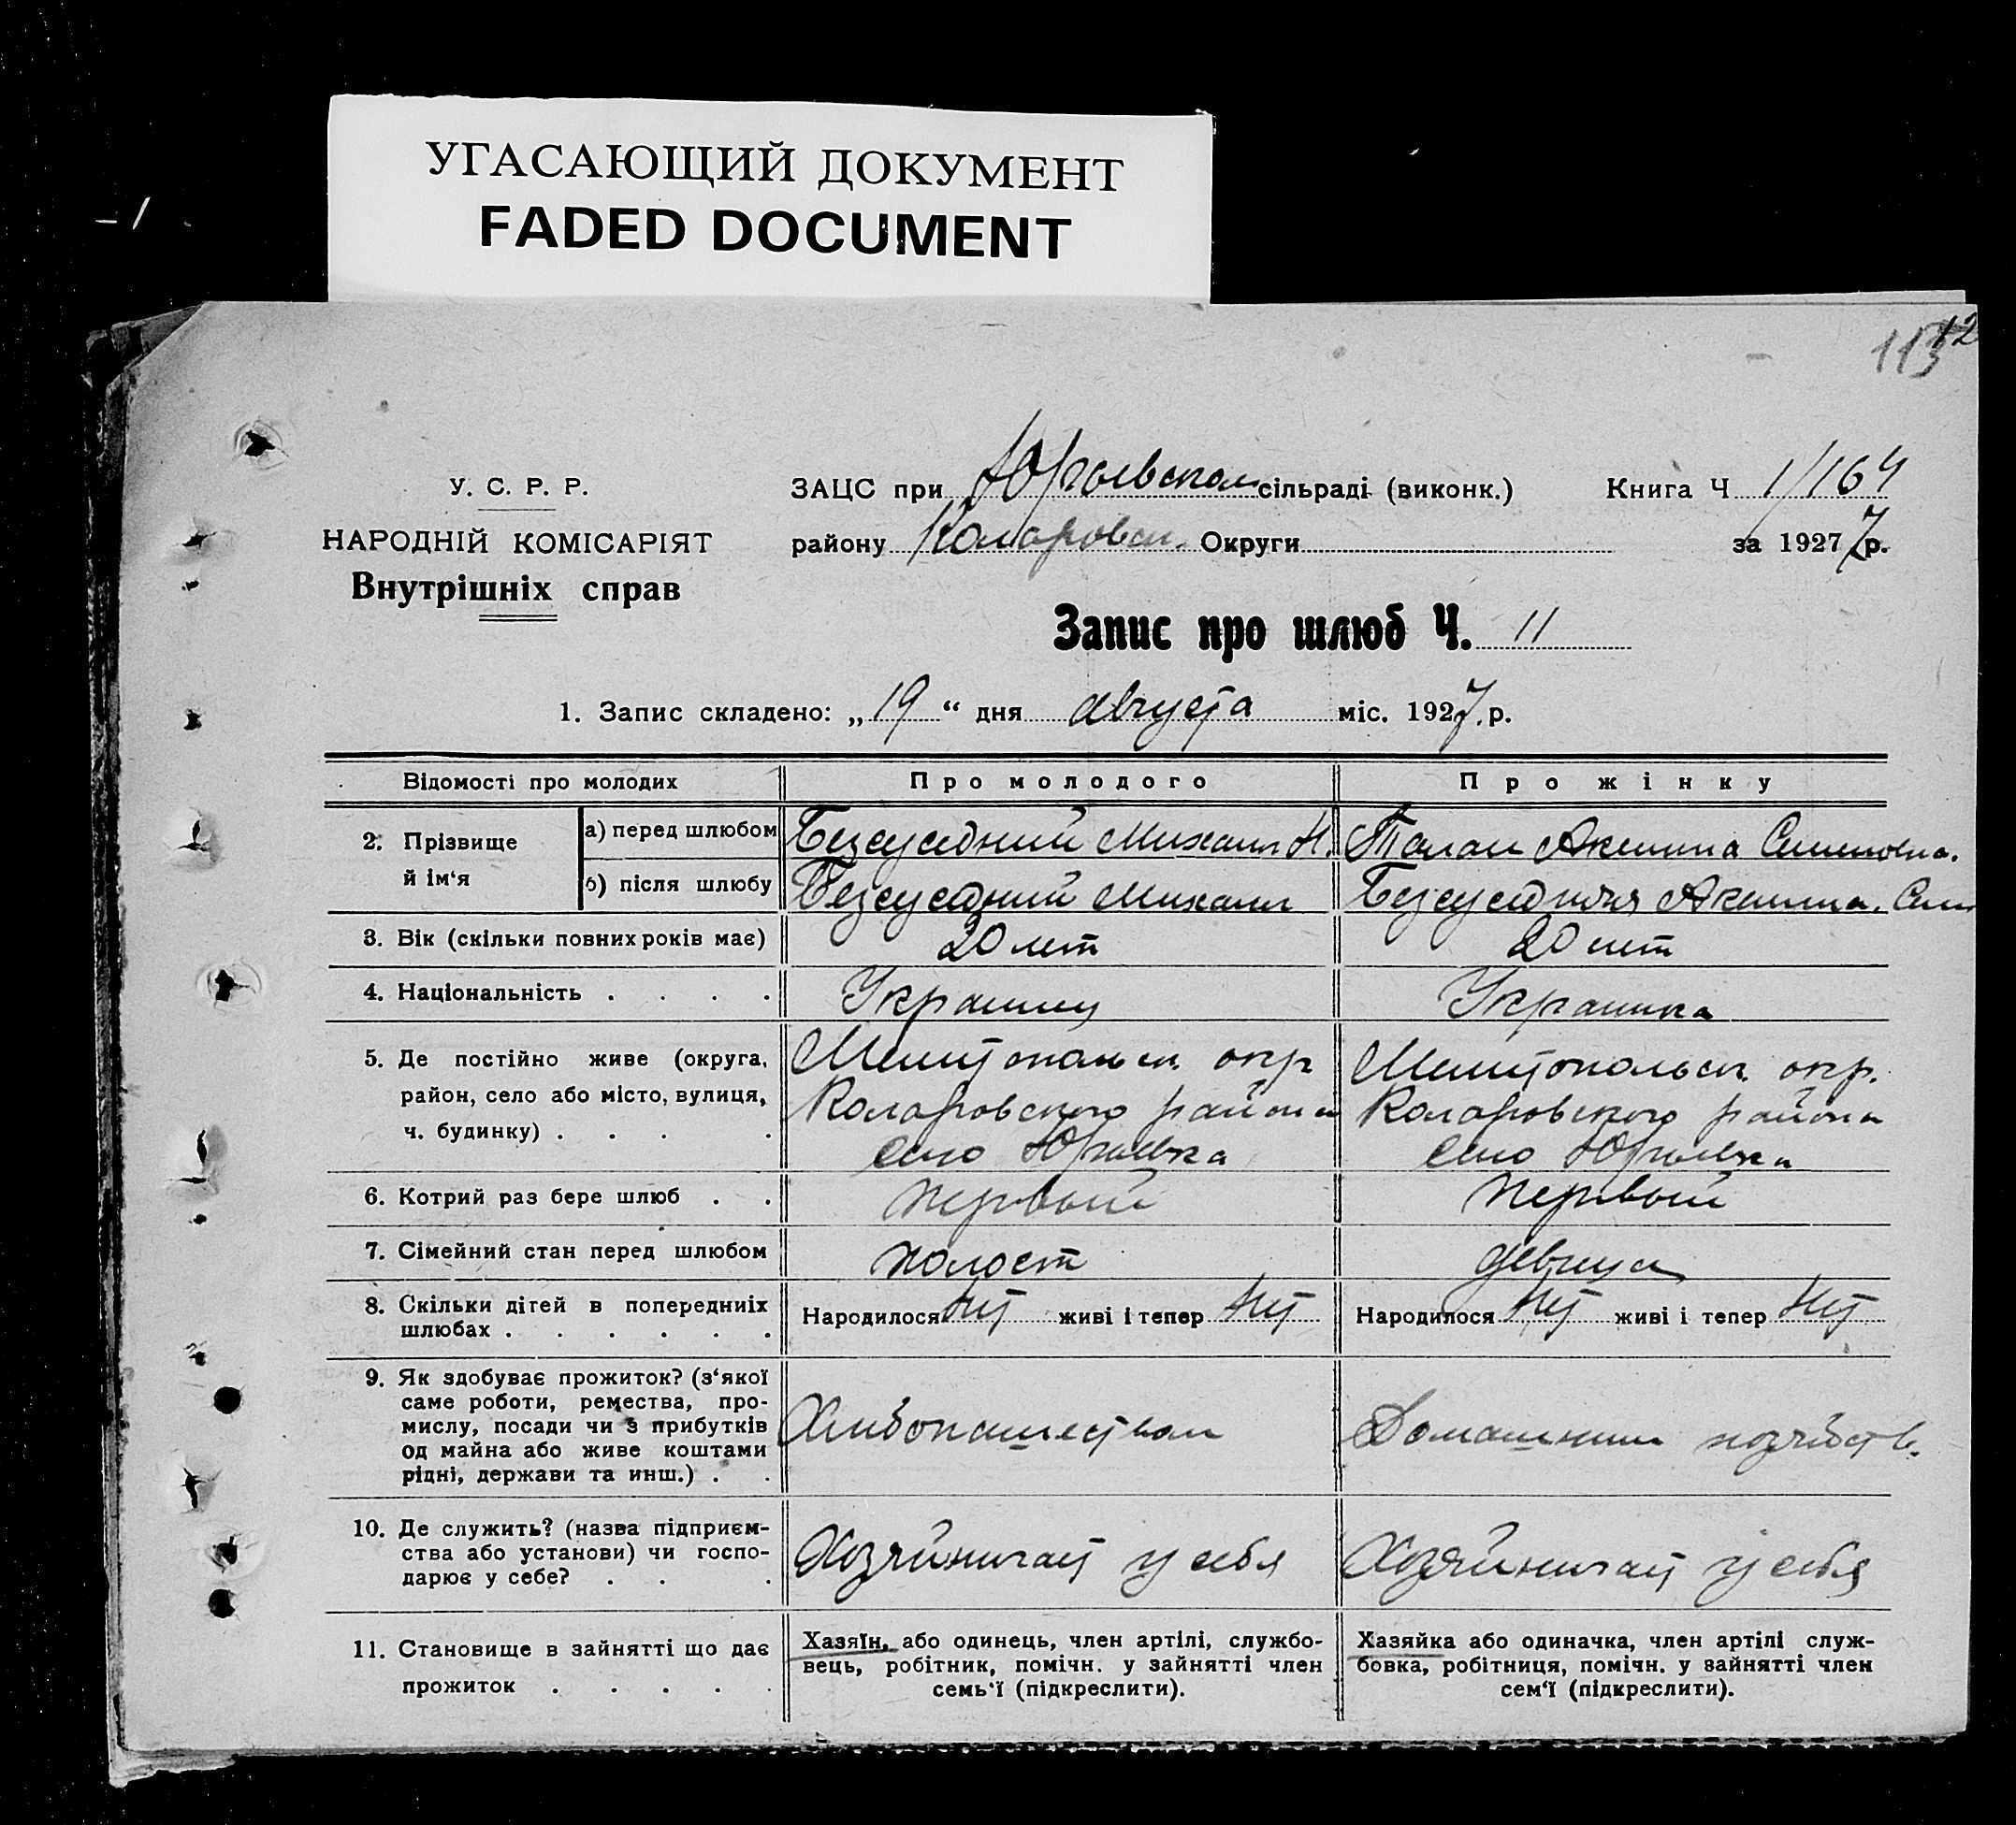 УГАСАЮЩИЙ ДОКУМЕНТ
FADED DOCUMENT
113 12
У. С. Р. Р.
НАРОДНІЙ КОМІСАРІЯТ
Внутрішніх справ
ЗАЦС при Юрьевском сільраді (виконк.) Книга Ч 1/164
району Коларовск. Округи за 1927 7 р.
Запис про шлюб Ч. 11
1. Запис складено: „19“ дня августа міс. 1927. р.
Відомості про молодих Про молодого Про жінку
2. Прізвище й ім‘я
а) перед шлюбом Безсуедний Михаил Н. Талан Акилина Семеновна.
б) після шлюбу Безсуедний Михаил Безсуедная Акилина. Сем
3. Вік (скільки повних років має) 20 лет 20 лет
4. Національність . . . . Украинец Украинка
5. Де постійно живе (округа, район, село або місто, вулиця, ч. будинку) . . . .
Мелитопольск. окр
Коларовского района
село Юрьевка
Мелитопольск. окр.
Коларовского района
село Юрьевка
6. Котрий раз бере шлюб . . первый первый
7. Сімейний стан перед шлюбом холост девица
8. Скільки дітей в попередниіх
шлюбах . . . . . .
Народилося нет живі і тепер нет Народилося нет живі і тепер нет
9. Як здобуває прожиток? (з‘якої
саме роботи, ремества, про-
мислу, посади чи з прибутків
од майна або живе коштами
рідні, держави та инш.) . .
Хлебопашеством
Домашним хозяйств.
10. Де служить? (назва підприєм-
ства або установи) чи госпо-
дарює у себе? . . .
Хозяйничает у себя
Хозяйничает у себя
11. Становище в зайнятті що дає
прожиток . . . . .
Хазяїн, або одинець, член артілі, службо-
вець, робітник, помічн. у зайнятті член
семь‘ї (підкреслити).
Хазяйка або одиначка, член артілі служ-
бовка, робітниця, помічн. у зайнятті член
сем‘ї (підкреслити).